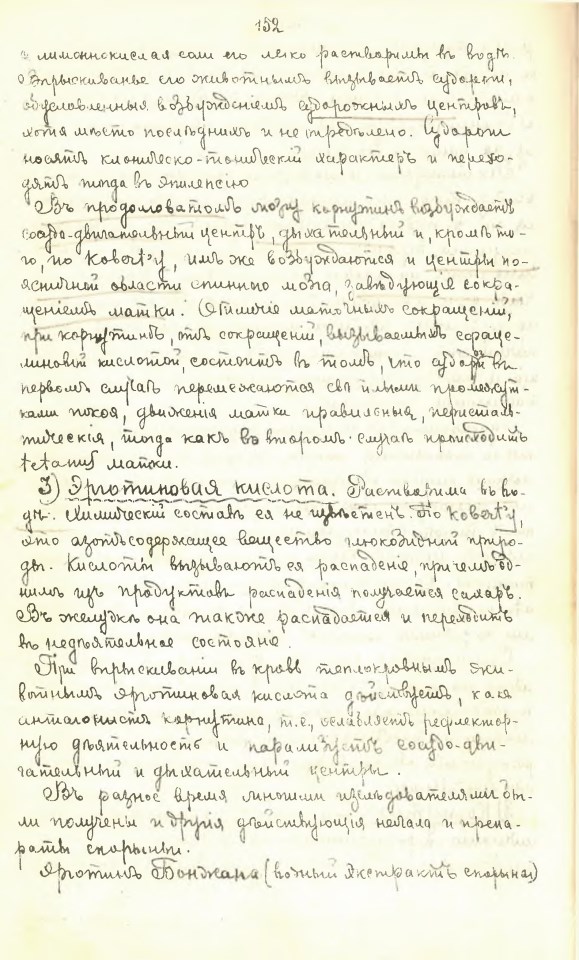 152
и лимоннокислая соли его легко растворимы въ водѣ.
Впрыскиванье его животнымъ вызываетъ судороги,
обусловленныя возбужденіемъ судорожныхъ центровъ,
хотя мѣсто послѣднихъ и не опредѣлено. Судороги
носятъ клоническо-тоническій характеръ и перехо-
дятъ тогда въ эпилепсію
Въ продолговатомъ мозгу корнутинъ возбуждаетъ
сосудо-двигательный центръ, дыхательный и, кромѣ то-
го, по Kobert'у, имъ же возбуждаются и центры по-
ясничной области спинного мозга, завѣдующіе сокра-
щеніемъ матки. Отличіе маточныхъ сокращеній,
при корнутинѣ, отъ сокращеній, вызываемыхъ сфаце-
линовой кислотой, состоитъ въ томъ, что судороги въ
первомъ случаѣ перемежаются свѣтлыми промежут-
ками покоя, движенія матки правильныя, перисталь-
тическія, тогда какъ во второмъ случаѣ происходитъ
tetanus матки.
3) Эрготиновая кислота. Растворима въ во-
дѣ. Химическій составъ ея не извѣстенъ. По Kobert'у,
это азотъ содержащее вещество глюкозидной приро-
ды. Кислоты вызываютъ ея распаденіе, причемъ од-
нимъ изъ продуктовъ распаденія получается сахаръ.
Въ желудкѣ она также распадается и переходитъ
въ недѣятельное состояніе.
При впрыскиваніи въ кровь теплокровнымъ жи-
вотнымъ эрготиновая кислота дѣйствуетъ, какъ
антагонистъ корнутина, т.е., ослабляетъ рефлектор-
ную дѣятельность и парализуетъ сосудо-дви-
гательный и дыхательный центры.
Въ разное время многими изслѣдователями бы-
ли получены и другія дѣйствующія начала и препа-
раты спорыньи.
Эрготинъ Бонжана (водный экстрактъ спорыньи)